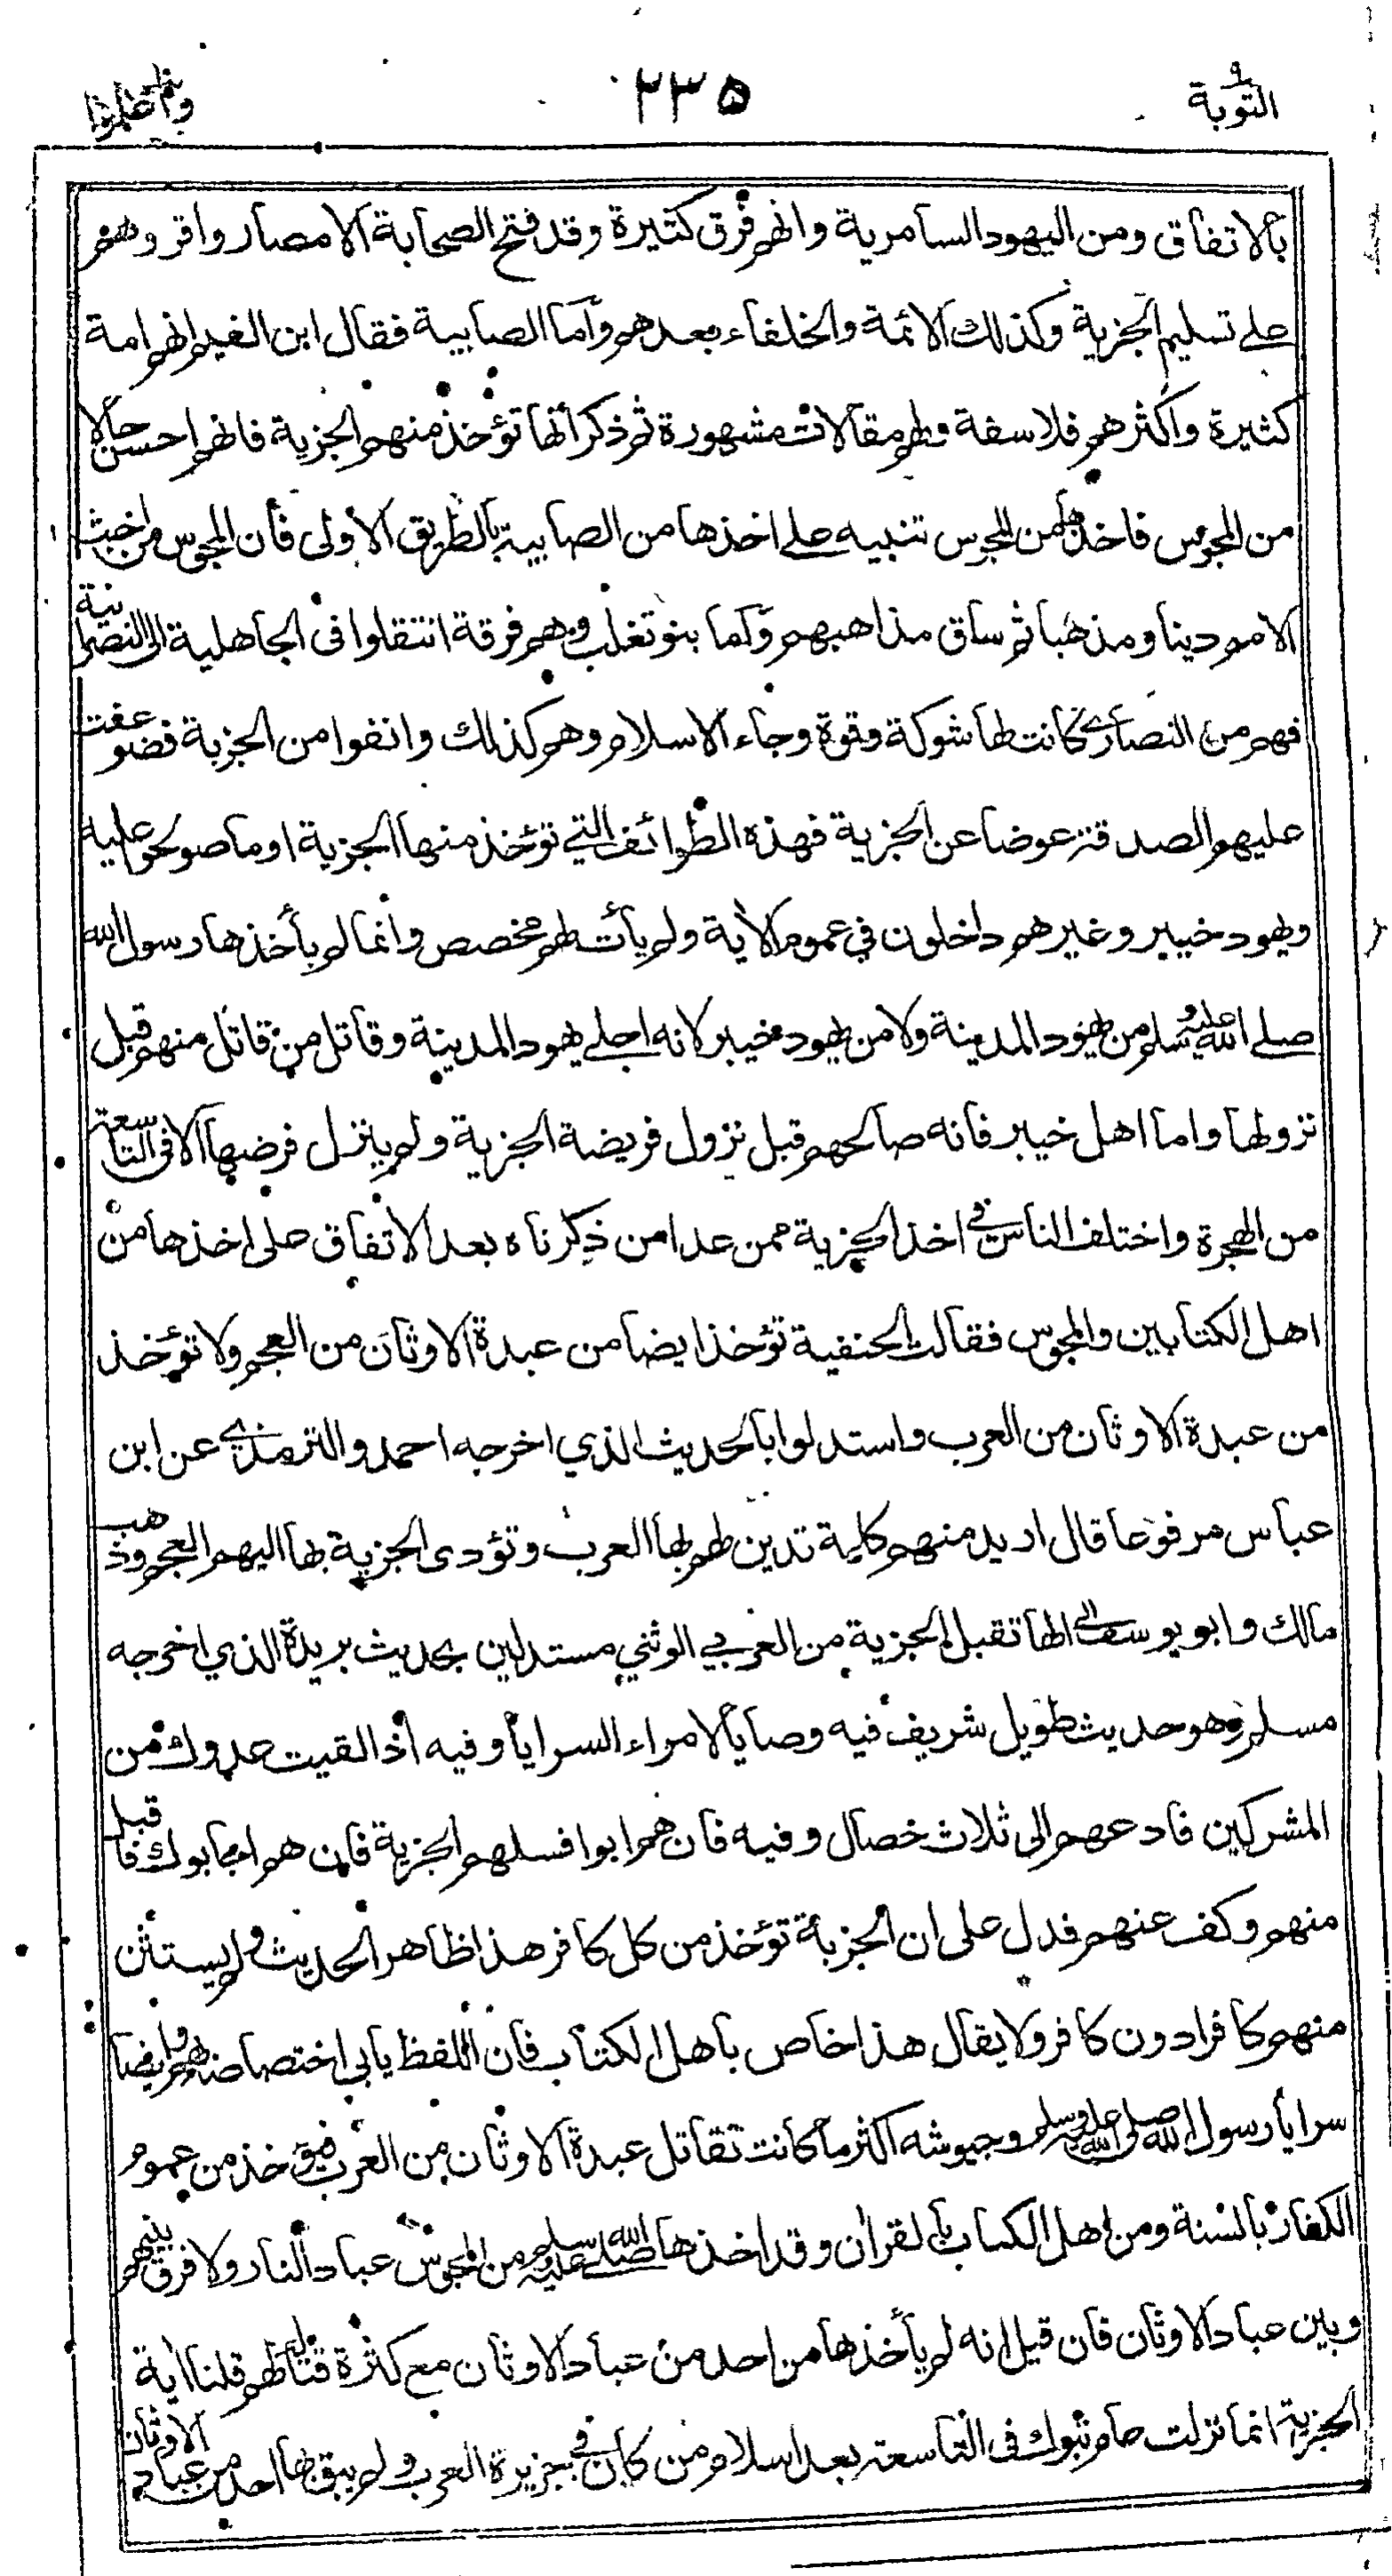 التوبة ٩ ٢٣٥ واعلموا
بالاتفاق ومن اليهود السامرية وانهم فرق كثيرة وقد فتح الصحابة الامصار واقروهم
على تسليم الجزية وكذلك الائمة والخلفاء بعدهم واما الصابية فقال ابن القيم انهم امة
كثيرة واكثرهم فلاسفة ولهم مقالات مشهورة ثم ذكر انها تؤخذ منهم الجزية فانهم احسن حالا
من المجوس فاخذها من المجوس تنبيه على اخذها من الصابية بالطريق الاولى فان المجوس من اخبث
الامم دينا ومذهبا ثم ساق مذاهبهم واما بنو تغلب وهم فرقة انتقلوا في الجاهلية الى النصرانية
فهم من النصارى كانت لها شوكة وقوة وجاء الاسلام وهم كذلك وانفوا من الجزية فضوعفت
عليهم الصدقة عوضا عن الجزية فهذه الطوائف التي تؤخذ منها الجزية او ما صولحوا عليه
ويهود خيبر وغيرهم داخلون في عموم الاية ولم يأت لهم مخصص وانما لم يأخذها رسول الله
صلى الله عليه وسلم من يهود المدينة ولا من يهود خيبر لانه اجلى يهود المدينة وقاتل من قاتل منهم قبل
نزولها واما اهل خيبر فانه صالحهم قبل نزول فريضة الجزية ولم ينزل فرضها الا في التاسعة
من الهجرة واختلف الناس في اخذ الجزية ممن عدا من ذكرناه بعد الاتفاق على اخذها من
اهل الكتابين والمجوس فقالت الحنفية تؤخذ ايضا من عبدة الاوثان من العجم ولا تؤخذ
من عبدة الاوثان من العرب واستدلوا بالحديث الذي اخرجه احمد والترمذي عن ابن
عباس مرفوعا قال اريد منهم كلمة تدين لهم بها العرب وتؤدى الجزية بها اليهم العجم وذهب
مالك وابو يوسف الى انها تقبل الجزية من العربي الوثني مستدلين بحديث بريدة الذي اخرجه
مسلم وهو حديث طويل شريف فيه وصايا لامراء السرايا وفيه اذا لقيت عدوك من
المشركين فادعهم الى ثلاث خصال وفيه فان هم ابوا فسلهم الجزية فان هم اجابوك فاقبل
منهم وكف عنهم فدل على ان الجزية تؤخذ من كل كافر هذا ظاهر الحديث ولم يستثن
منهم كافرا دون كافر ولا يقال هذا خاص باهل الكتاب فان اللفظ يابى اختصاصهم وايضا
سرايا رسول الله صلى الله عليه وسلم وجيوشه اكثر ما كانت تقاتل عبدة الاوثان من العرب فيؤخذ من عموم
الكفار بالسنة ومن اهل الكتاب بالقران وقد اخذها صلى الله عليه وسلم من المجوس عباد النار ولا فرق بينهم
وبين عباد الاوثان فان قيل انه لم يأخذها من احد من عباد الاوثان مع كثرة قتاله لهم قلنا اية
الجزية انما نزلت عام تبوك في التاسعة بعد اسلام من كان في جزيرة العرب ولم يبق بها احد من عباد الاوثان